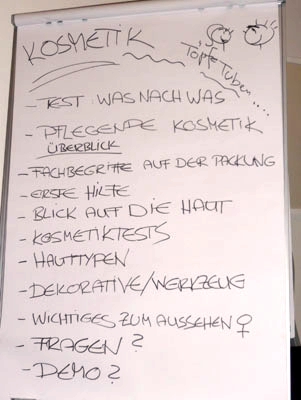 KOSMETIK
Töpfe Tuben....
- TEST: WAS NACH WAS
- PFLEGENDE KOSMETIK
ÜBERBLICK
- FACHBEGRIFFE AUF DER PACKUNG
- ERSTE HILFE
- BLICK AUF DIE HAUT
- KOSMETIKTESTS
- HAUTTYPEN
- DEKORATIVE/WERKZEUG
- WICHTIGES ZUM AUSSEHEN ♀
- FRAGEN?
- DEMO?